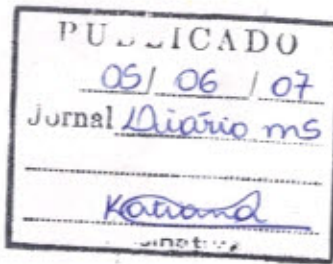 PUBLICADO
05/ 06 / 07
Jornal Diário ms
Katiana